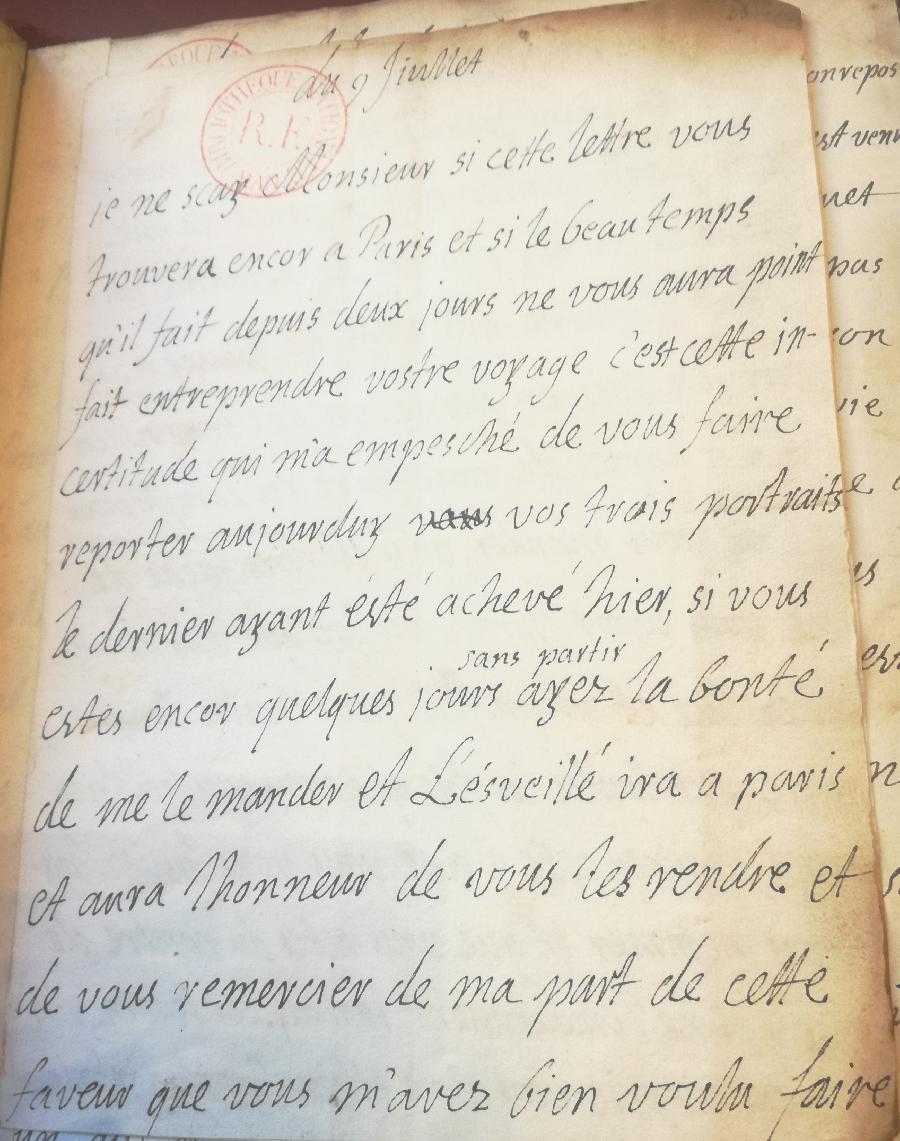 du 9 Juillet
R.F.
je ne scay Monsieur si cette lettre vous
trouvera encor a Paris et si le beau temps
qu'il fait depuis deux jours ne vous aura point
fait entreprendre vostre voyage c'est cette in-
certitude qui m'a empesché de vous faire
reporter aujourduy vos trois portraits
le dernier ayant ésté achevé hier, si vous
sans partir
estes encor quelques jours ayez la bonté
de me le mander et L'ésveillé ira a paris
et aura lhonneur de vous les rendre et
de vous remercier de ma part de cette
faveur que vous m'avez bien voulu faire